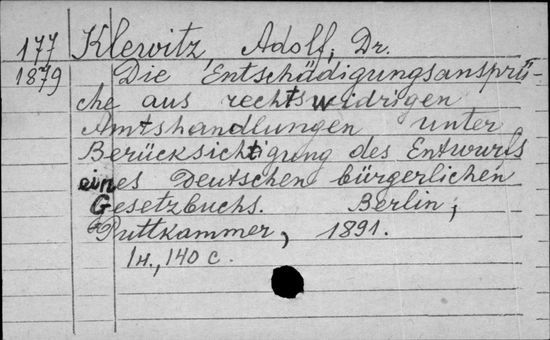 177 Klewitz, Adolf, Dr.
1879 Die Entschädigungsansprü-
che aus rechtswidrigen
Amtshandlungen unter
Berücksichtigung des Entwurfs
eines Deutschen bürgerlichen
Gesetzbuchs. Berlin;
Puttkammer, 1891.
1н., 140 с.